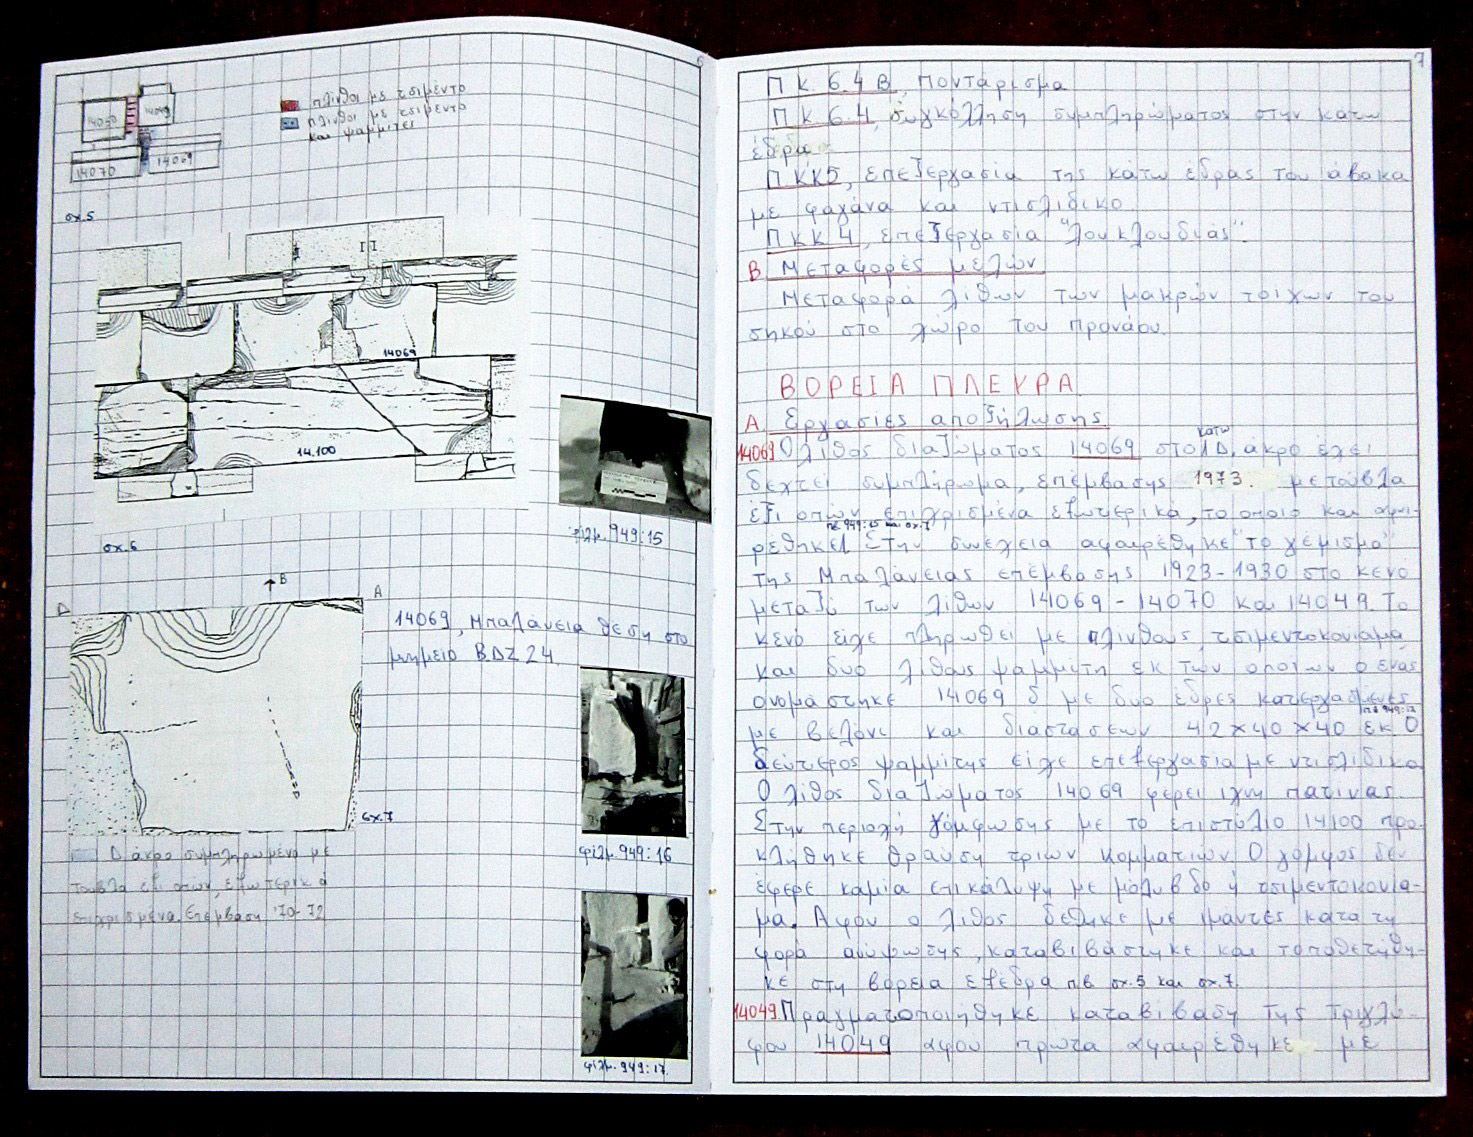 6
14050
14049
14070
14069
πλίνθοι με τσιμέντο
πλίνθοι με τσιμέντο
και ψαμμίτες
σχ.5
14069
14.100
φίλμ. 949:15
σχ.6
B
Δ
A
14069, Μπαλάνεια θέση στο
μνημείο ΒΔΖ 24
σχ.7
φίλμ. 949:16
Δ άκρο συμπληρωμένο με
τούβλα εξι οπών, εξωτερικά
επιχρισμένα. Επέμβαση '70-72
φίλμ. 949:17
7
ΠΚ. 6.4 Β, Ποντάρισμα
ΠΚ. 6.4, συγκόλληση συμπληρώματος στην κάτω
έδρα
ΠΚΚ5, επεξεργασία της κάτω έδρας του άβακα
με φαγάνα και ντισλίδικο
ΠΚΚ4, επεξεργασία "λουκλουδιάς".
Β. Μεταφορές μελών
Μεταφορά λίθων των μακρών τοίχων του
σηκού στο χώρο του προνάου.
ΒΟΡΕΙΑ ΠΛΕΥΡΑ
Α. Εργασίες αποξήλωσης
14069 Ο λίθος διαζώματος 14069 στο κάτω Δ. άκρο έχει
δεχτεί συμπλήρωμα, επέμβασης 1973. με τούβλα
έξι οπών επιχρισμένα εξωτερικά, το οποίο και αφαι-
πβ 949:15 και σχ.7
ρέθηκε. Στην συνέχεια αφαιρέθηκε "το γέμισμα"
της Μπαλάνειας επέμβασης 1923-1930 στο κενό
μεταξύ των λίθων 14069-14070 και 14049. Το
κενό είχε πληρωθεί με πλίνθους, τσιμεντοκονίαμα
και δυο λίθους ψαμμίτη εκ των οποίων ο ένας
ονομάστηκε 14069 δ με δυο έδρες κατεργασμένες
πβ 949:17
με βελόνι και διαστάσεων 42×40×40 εκ. Ο
δεύτερος ψαμμίτης είχε επεξεργασία με ντισλίδικο
Ο λίθος διαζώματος 14069 φέρει ίχνη πατίνας.
Στην περιοχή γόμφωσης με το επιστύλιο 14100 προ-
κλήθηκε θραύση τριών κομματιών. Ο γόμφος δεν
έφερε καμία επικάλυψη με μόλυβδο ή τσιμεντοκονία-
μα. Αφού ο λίθος δέθηκε με ιμάντες κατά τη
φορά ανύψωσης, καταβιβάστηκε και τοποθετήθη-
κε στη βόρεια εξέδρα πβ. σχ.5 και σχ.7.
14049 Πραγματοποιήθηκε καταβίβαση της τριγλύ-
φου 14049 αφού πρώτα αφαιρέθηκε με